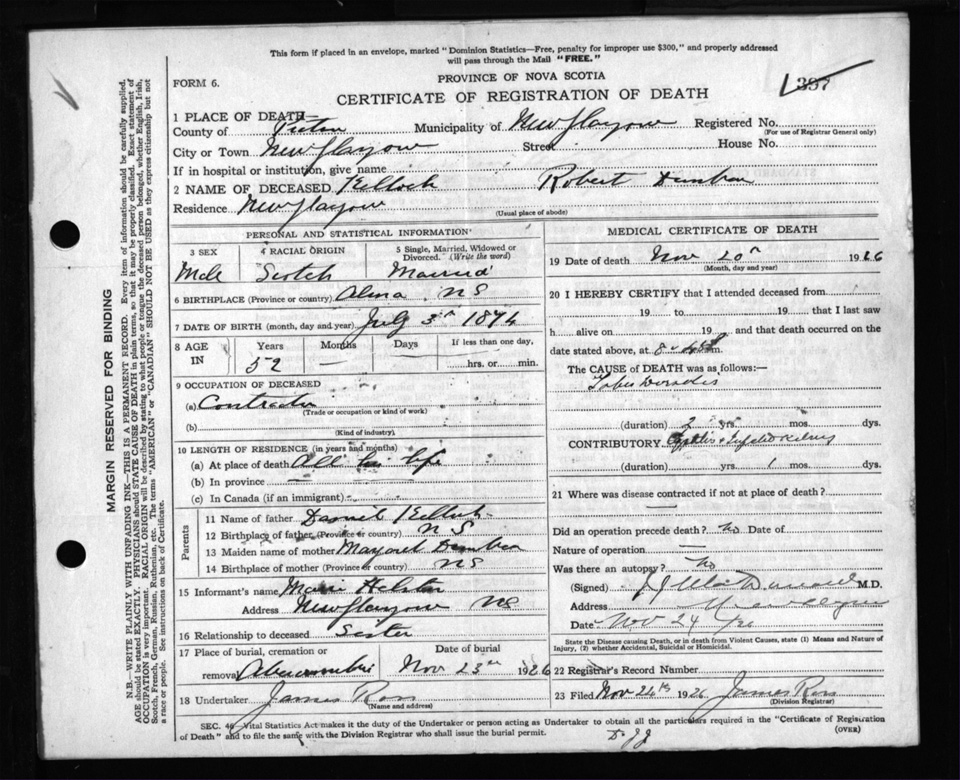 This form if placed in an envelope, marked "Dominion Statistics—Free, penalty for improper use $300," and properly addressed
will pass through the Mail "FREE."
FORM 6.
PROVINCE OF NOVA SCOTIA
397
CERTIFICATE OF REGISTRATION OF DEATH
1 PLACE OF DEATH—
County of Pictou Municipality of New Glasgow Registered No.
(For use of Registrar General only)
City or Town New Glasgow Street House No.
If in hospital or institution, give name
2 NAME OF DECEASED Kellock Robert Dunbar
Residence New Glasgow
(Usual place of abode)
PERSONAL AND STATISTICAL INFORMATION
3 SEX 4 RACIAL ORIGIN 5 Single, Married, Widowed or Divorced. (Write the word)
Male Scotch Married
6 BIRTHPLACE (Province or country) Alma NS
7 DATE OF BIRTH (month, day and year) July 3rd 1874
8 AGE IN Years Months Days If less than one day,
52 hrs. or min.
9 OCCUPATION OF DECEASED
(a) Contractor
(Trade or occupation or kind of work)
(b)
(Kind of industry)
10 LENGTH OF RESIDENCE (in years and months)
(a) At place of death All his life
(b) In province
(c) In Canada (if an immigrant)
Parents
11 Name of father Daniel Kellock
12 Birthplace of father (Province or country) NS
13 Maiden name of mother Margaret Dunbar
14 Birthplace of mother (Province or country) NS
15 Informant's name
Address New Glasgow NS
16 Relationship to deceased Sister
17 Place of burial, cremation or Date of burial
removal Abercrombie Nov 23rd 1926
18 Undertaker James Ross
(Name and address)
MEDICAL CERTIFICATE OF DEATH
19 Date of death Nov 20th 1926
(Month, day and year)
20 I HEREBY CERTIFY that I attended deceased from
19 to 19 that I last saw
h alive on 19 and that death occurred on the
date stated above, at m.
The CAUSE of DEATH was as follows:—
Tabes Dorsalis
(duration) 2 yrs. mos. dys.
CONTRIBUTORY
(duration) yrs. 1 mos. dys.
21 Where was disease contracted if not at place of death?
Did an operation precede death? No Date of
Nature of operation
Was there an autopsy? No
(Signed) M.D.
Address
Date Nov 24/26
State the Disease causing Death, or in Death from Violent Causes, state (1) Means and Nature of
Injury, (2) whether Accidental, Suicidal or Homicidal.
22 Registrar's Record Number
23 Filed Nov 24th 1926 James Ross
(Division Registrar)
SEC. 46 Vital Statistics Act makes it the duty of the Undertaker or person acting as Undertaker to obtain all the particulars required in the "Certificate of Registration
of Death" and to file the same with the Division Registrar who shall issue the burial permit.
(OVER)
MARGIN RESERVED FOR BINDING
N.B.—WRITE PLAINLY WITH UNFADING INK—THIS IS A PERMANENT RECORD. Every item of information should be carefully supplied.
AGE should be stated EXACTLY. PHYSICIANS should STATE CAUSE OF DEATH in plain terms, so that it may be properly classified. Exact statement of
OCCUPATION is very important. RACIAL ORIGIN will be described by stating to what people or tongue the deceased person belonged, whether English, Irish,
Scotch, French, German, Russian, Ruthenian, etc. The terms "AMERICAN" or "CANADIAN" SHOULD NOT BE USED as they express citizenship but not
a race or people. See instructions on back of Certificate.